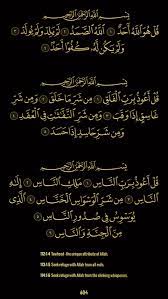 بِسْمِ اللَّهِ الرَّحْمَٰنِ الرَّحِيمِ
قُلْ هُوَ اللَّهُ أَحَدٌ ١ اللَّهُ الصَّمَدُ ٢ لَمْ يَلِدْ وَلَمْ يُولَدْ ٣
وَلَمْ يَكُن لَّهُ كُفُوًا أَحَدٌ ٤
بِسْمِ اللَّهِ الرَّحْمَٰنِ الرَّحِيمِ
قُلْ أَعُوذُ بِرَبِّ الْفَلَقِ ١ مِن شَرِّ مَا خَلَقَ ٢ وَمِن شَرِّ
غَاسِقٍ إِذَا وَقَبَ ٣ وَمِن شَرِّ النَّفَّاثَاتِ فِي الْعُقَدِ ٤
وَمِن شَرِّ حَاسِدٍ إِذَا حَسَدَ ٥
بِسْمِ اللَّهِ الرَّحْمَٰنِ الرَّحِيمِ
قُلْ أَعُوذُ بِرَبِّ النَّاسِ ١ مَلِكِ النَّاسِ ٢ إِلَٰهِ
النَّاسِ ٣ مِن شَرِّ الْوَسْوَاسِ الْخَنَّاسِ ٤ الَّذِي
يُوَسْوِسُ فِي صُدُورِ النَّاسِ ٥
مِنَ الْجِنَّةِ وَالنَّاسِ ٦
112:1-4 Tawheed - the unique attributes of Allah.
113:1-5 Seek refuge with Allah from all evils.
114:1-6 Seek refuge with Allah from the slinking whisperers.
604